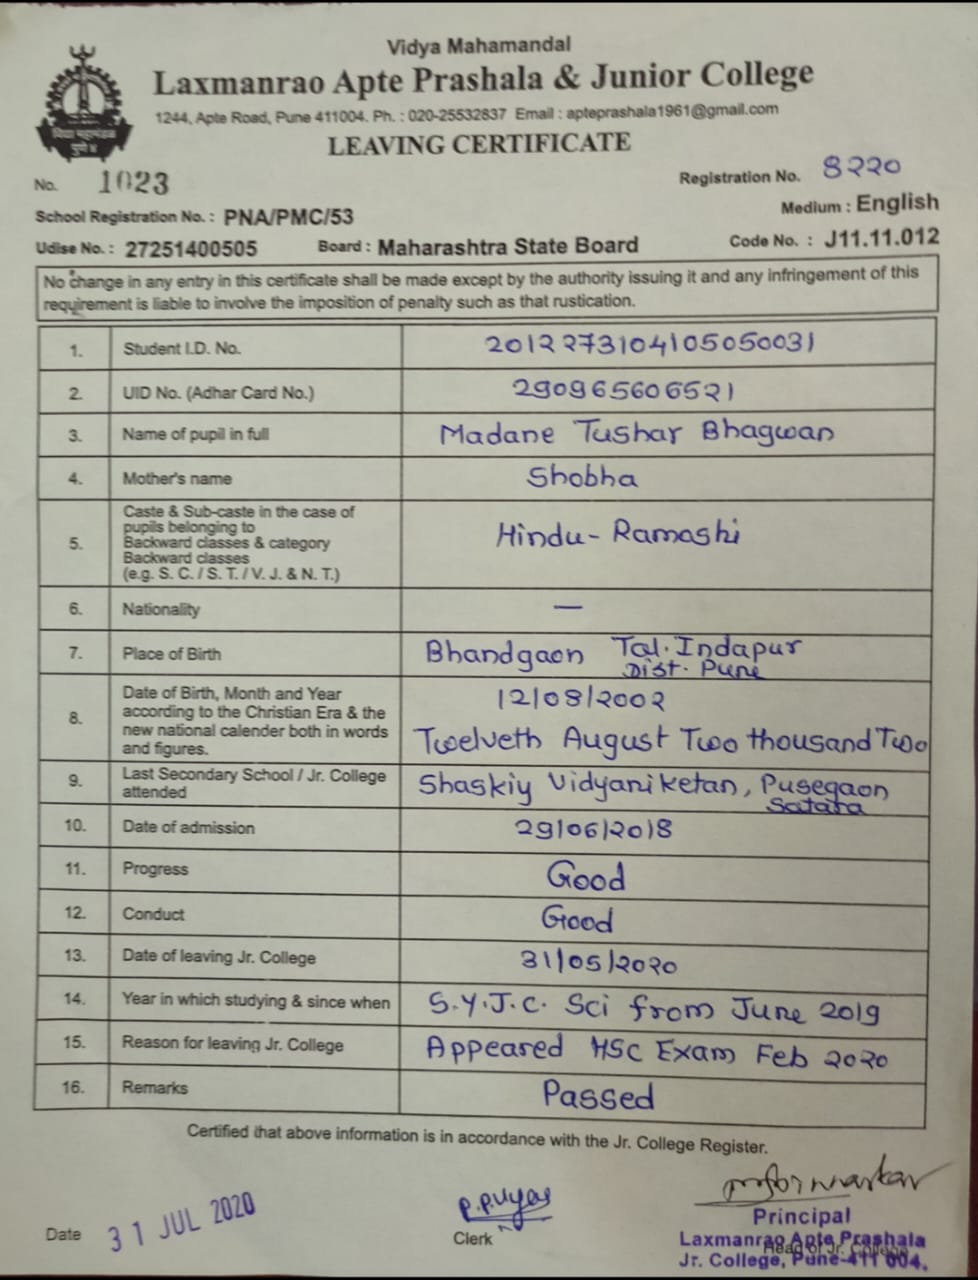 Vidya Mahamandal
Laxmanrao Apte Prashala & Junior College
1244, Apte Road, Pune 411004. Ph. : 020-25532837 Email : apteprashala1961@gmail.com
LEAVING CERTIFICATE
No. 1023
Registration No. 8220
School Registration No. : PNA/PMC/53
Medium : English
Udise No. : 27251400505 Board : Maharashtra State Board Code No. : J11.11.012
No change in any entry in this certificate shall be made except by the authority issuing it and any infringement of this
requirement is liable to involve the imposition of penalty such as that rustication.
1. Student I.D. No. 2012273104105050031
2. UID No. (Adhar Card No.) 290965606521
3. Name of pupil in full Madane Tushar Bhagwan
4. Mother's name Shobha
5. Caste & Sub-caste in the case of
pupils belonging to
Backward classes & category
Backward classes
(e.g. S. C. / S. T. / V. J. & N. T.)
Hindu - Ramoshi
6. Nationality —
7. Place of Birth Bhandgaon Tal. Indapur
Dist. Pune
8. Date of Birth, Month and Year
according to the Christian Era & the
new national calender both in words
and figures.
12/08/2002
Twelveth August Two thousand Two
9. Last Secondary School / Jr. College
attended
Shaskiy Vidyaniketan, Pusegaon
Satara
10. Date of admission 29/06/2018
11. Progress Good
12. Conduct Good
13. Date of leaving Jr. College 31/05/2020
14. Year in which studying & since when S.Y.J.C. Sci from June 2019
15. Reason for leaving Jr. College Appeared HSC Exam Feb 2020
16. Remarks Passed
Certified that above information is in accordance with the Jr. College Register.
Date 31 JUL 2020
P.P.Vyas
Clerk
Principal
Laxmanrao Apte Prashala
Head of Jr. College
Jr. College, Pune-411 004.